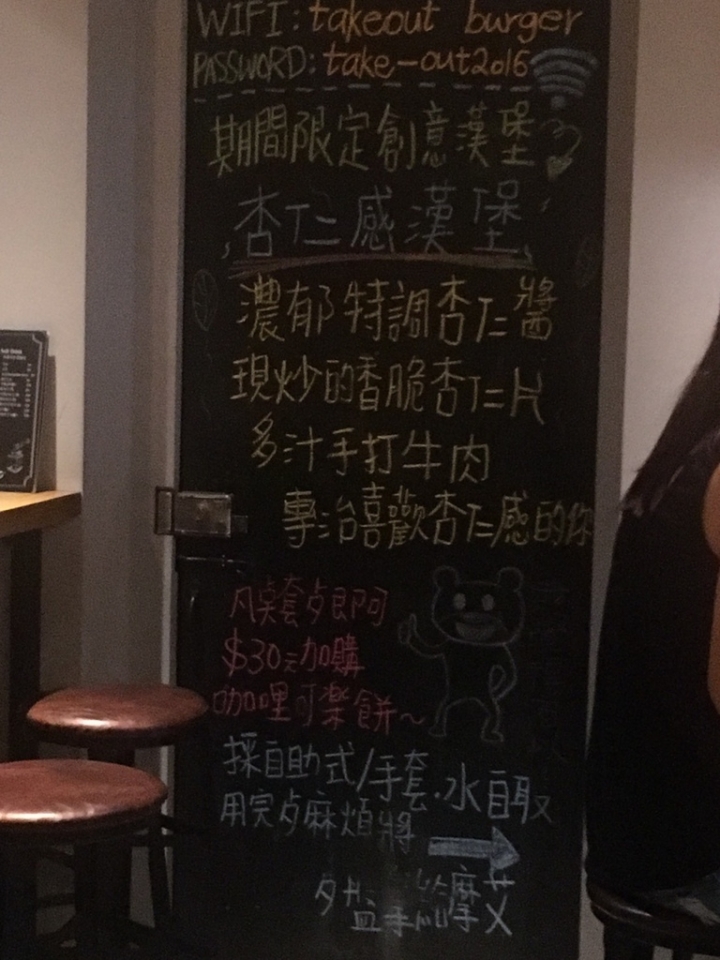 WIFI: takeout burger
PASSWORD: take-out2016
期間限定創意漢堡
杏仁感漢堡
濃郁特調杏仁醬
現炒的香脆杏仁片
多汁手打牛肉
專治喜歡杏仁感的你
凡桌套歺即可
$30元加購
咖哩可樂餅~
採自助式/手套.水自取
用完歺麻煩將
歺盤手